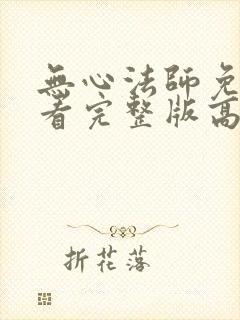 無心法師免
看完整版高
折花落